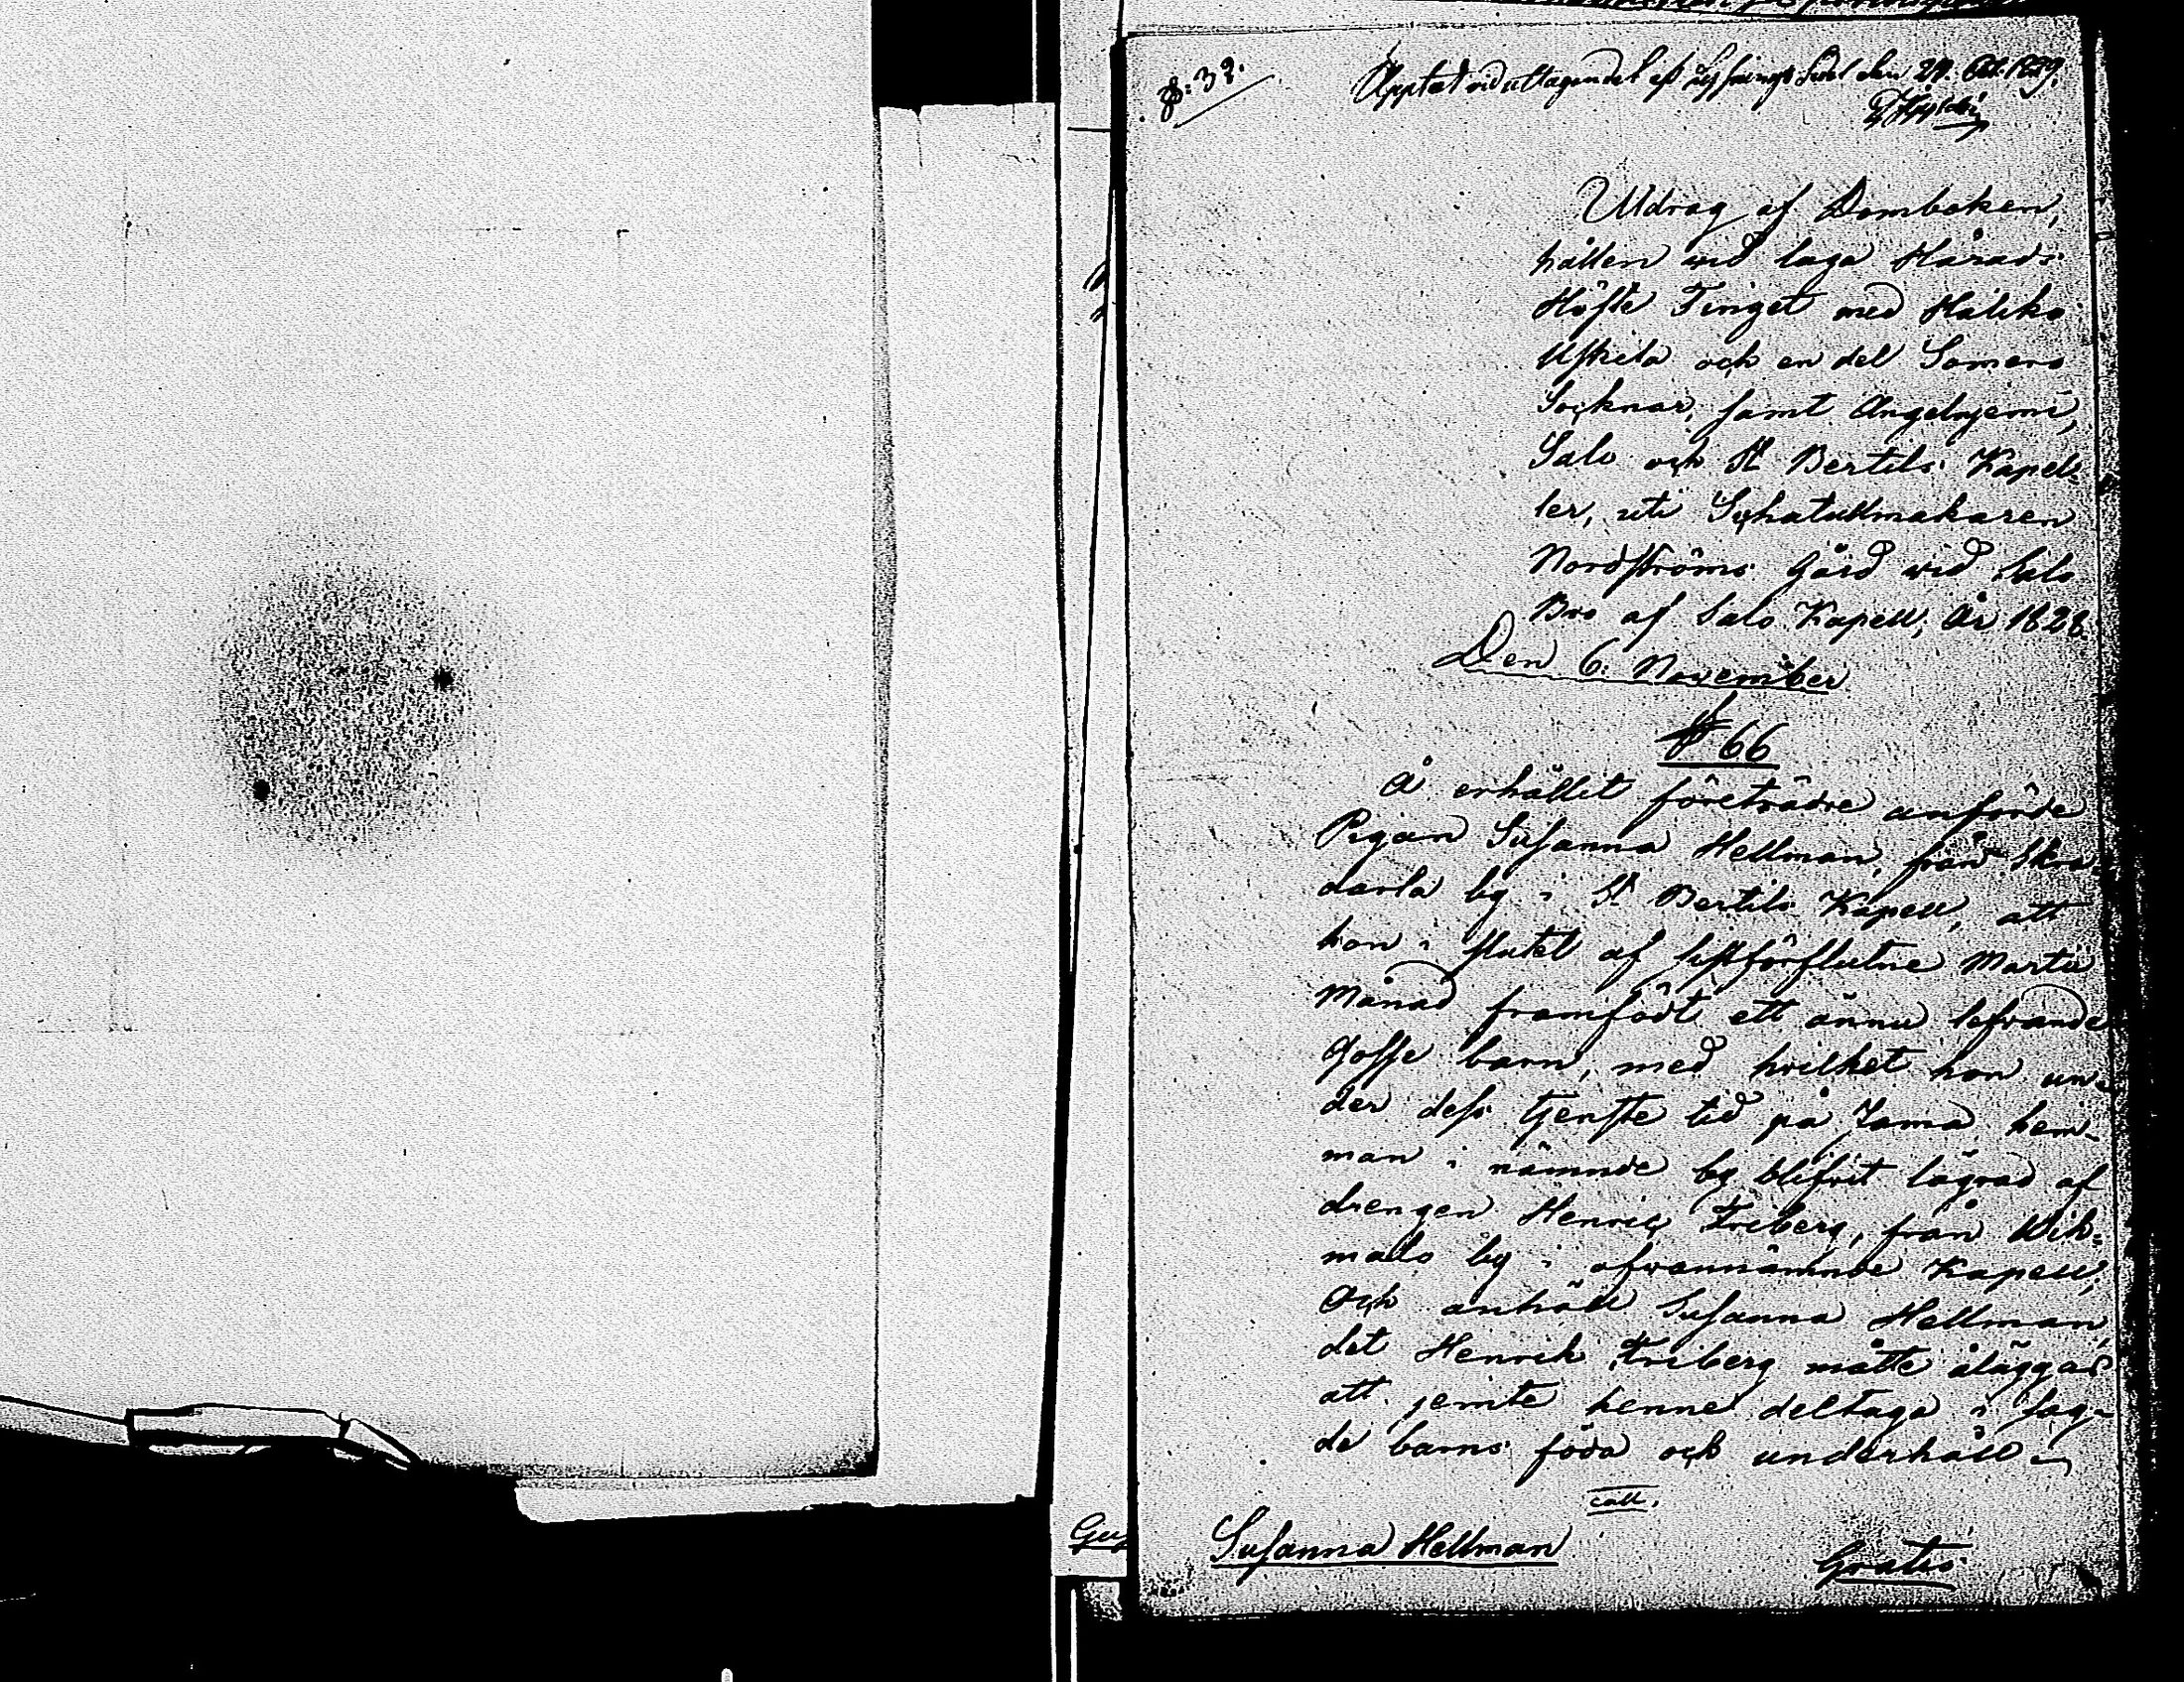 №: 32.
Upptedt vid uttagandet af Lysnings Sedel den 24. Oct. 1829.
Utdrag af Domboken,
hållen wid laga Härads-
Höste Tinget med Haliko
Uskela och en del Somero
Socknar, samt Angelnjemi,
Salo och St Bertils Kapel-
ler, uti Schatullmakaren
Nordströms Gård wid Salo
Bro af Salo Kapell, År 1828
Den 6. November
§ 66
Å erhållit företräde anförde
Pigan Susanna Hellman, från
by i St Bertils Kapell, att
hon i slutet af sistförflutne Martii
Månad framfödt ett ännu lefvande
Gosse barn, med hvilket hon un-
der dess tjenste tid på Jama hem-
man i nämnde by blifvit lägrad af
drengen Henric Friberg, från
by i ofvannämnde Kapell,
Och anhöll Susanna Hellman,
det Henrik Friberg måtte åläggas
att jemte henne deltaga i sag-
de barns föda och underhåll
Susanna Hellman
Gratis
Gu